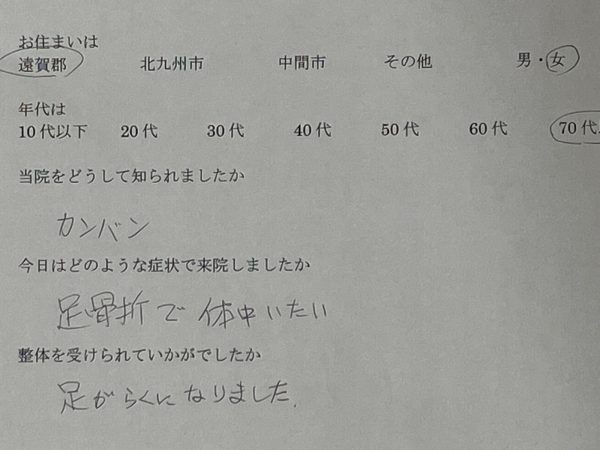 お住まいは
遠賀郡 北九州市 中間市 その他 男・女
年代は
10代以下 20代 30代 40代 50代 60代 70代
当院をどうして知られましたか
カンバン
今日はどのような症状で来院しましたか
足骨折で 体中いたい
整体を受けられていかがでしたか
足がらくになりました.